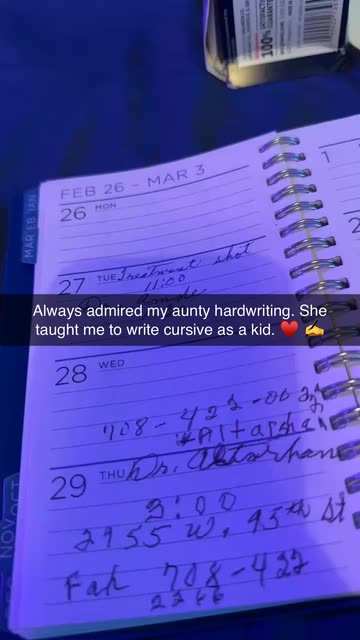 100%
SATISFACTION
GUARANTEE
FEB 26 - MAR 3
1
26 MON
MAR FEB JAN
27 TUE Treatment shot
11:00
Always admired my aunty hardwriting. She
taught me to write cursive as a kid. ❤️ ✍️
28 WED
708-422-00
29 THU Dr.
2:00
2955 W. 95th St
NOV OCT
Fah 708-422
2266